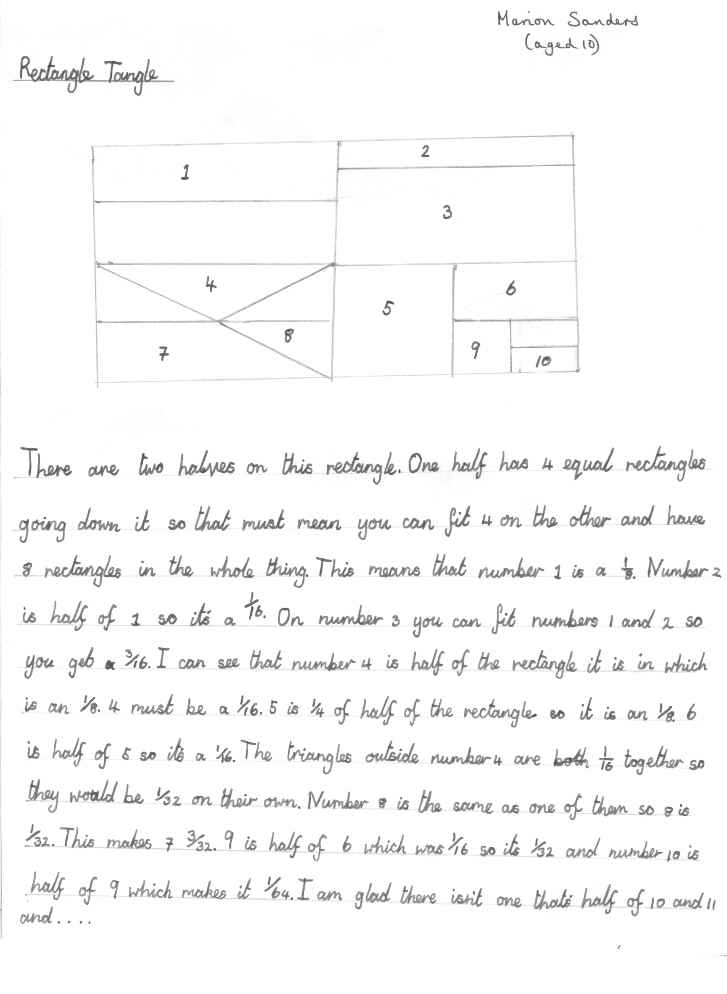 Marion Sanders
(aged 10)
Rectangle Tangle
1
2
3
4
5
6
7
8
9
10
There are two halves on this rectangle. One half has 4 equal rectangles
going down it so that must mean you can fit 4 on the other and have
8 rectangles in the whole thing. This means that number 1 is a 1/8. Number 2
is half of 1 so it's a 1/16. On number 3 you can fit numbers 1 and 2 so
you get a 3/16. I can see that number 4 is half of the rectangle it is in which
is an 1/8. 4 must be a 1/16. 5 is 1/4 of half of the rectangle so it is an 1/8. 6
is half of 5 so it's a 1/16. The triangles outside number 4 are both 1/16 together so
they would be 1/32 on their own. Number 8 is the same as one of them so 8 is
1/32. This makes 7 3/32. 9 is half of 6 which was 1/16 so it's 1/32 and number 10 is
half of 9 which makes it 1/64. I am glad there isn't one that's half of 10 and 11
and....